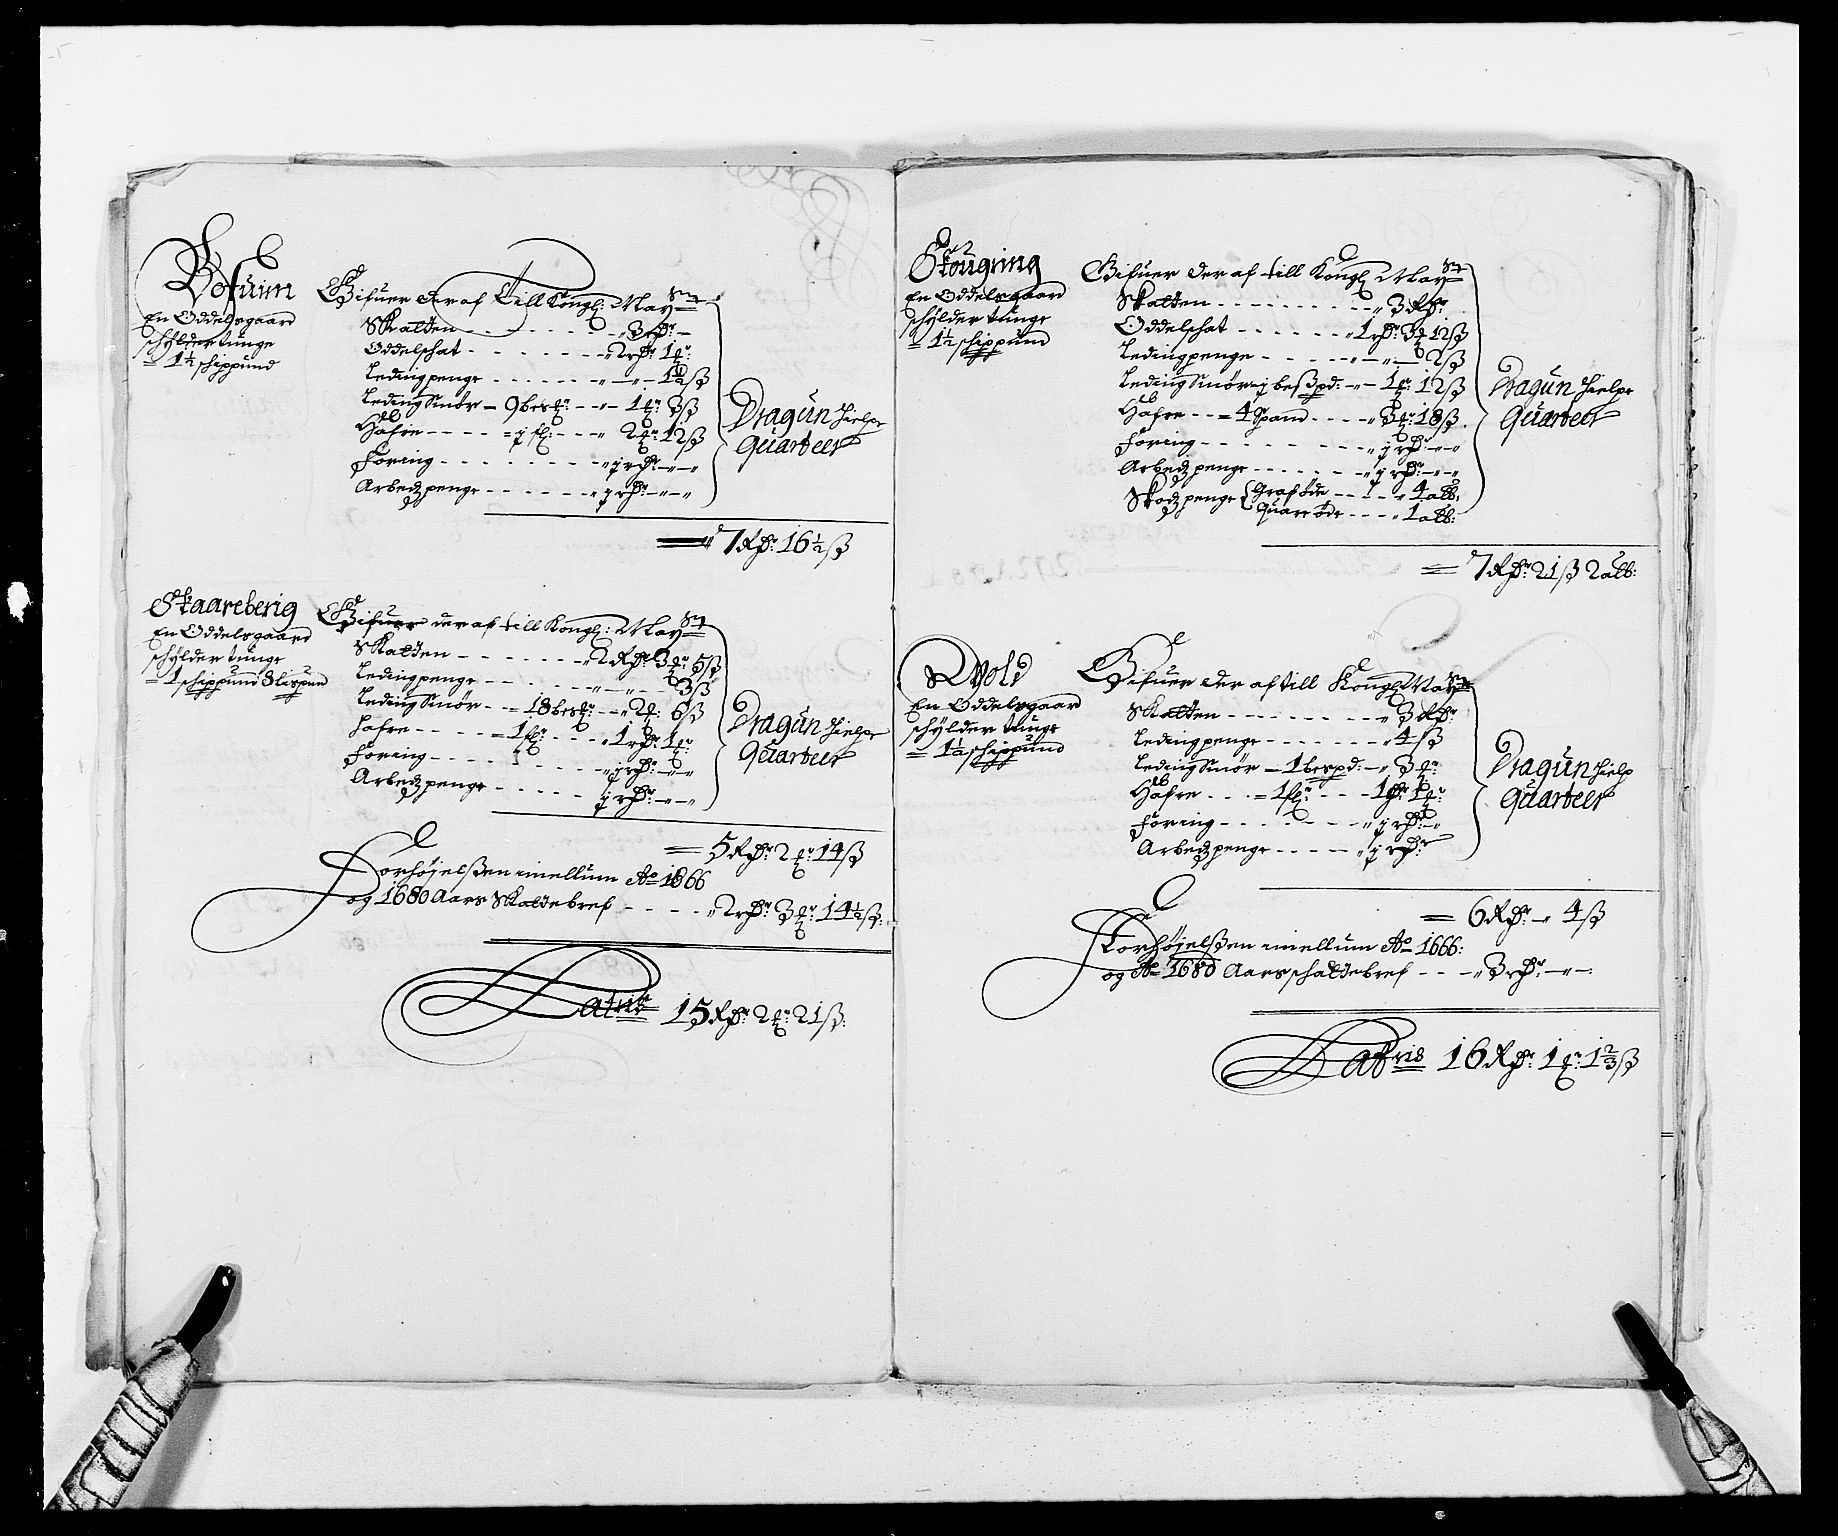 Bofuim
En Oddelsgaard
schylder tunge
= 1½ schippund
Gifuer der af till Kongl: May
Skatten - - - - " 3 rdr: -
Oddelschat - - - - " 2 rdr 1 ort:
Ledingpenge - - - - " - " - 1½ ß
Ledingsmør - 9 besmr: - " - 1 ort: 3 ß
Hafre - - - - = j fl: - - " 2 ort: 12 ß
Foring - - - - " j rdr: - " - "
Arbedzpenge - - - - " j rdr: - " - "
Dragun Hielpe
Quarteer
= " 7 Rdr: 16½ ß
Skaareberig
En Oddelsgaard
schylder tunge
= 1 schippund 8 lispun
Gifuer der af till Kongl: May
Skatten - - - - " 2 Rdr: 3 ort: 5 ß
Ledingpenge - - - - " - " - 3 ß
Ledingsmør - = 18 besmr: - " 2 ort: 6 ß
Hafre - - - - = 1 fl: - - " 1 rdr: 1 ort:
Foring - - - - " j rdr: - " - "
Arbedzpenge - - - - j rdr: - " - "
Dragun Hielpe
Quarteer
= 5 Rdr: 2 ort: 14 ß
Forhøjelßen imellum Ao 1666
og 1680 Aars Skattebref - - - - " 2 rdr: 3 ort: 14½ ß:
Latris 15 Rdr: 2 ort: 21 ß:
Skougring
En Oddelsgaard
schylder tunge
= 1½ schippund
Gifuer der af till Kongl May
Skatten - - - - " 3 Rdr:
Oddelschat - - - - " 1 rdr: 3 ort 12 ß
Ledingpenge - - - - " - " - 2 ß
Ledingsmør - j beßpd: - " - 1 ort: 12 ß
Hafre - - = 4 Spand - - - - " 3 ort: 18 ß
Foring - - - - " j rdr: - " - "
Arbedzpenge - - - - " j rdr: - " - "
Skodzpenge { Graføde - - - - " 4 alb:
Quarrøde - - - - " 1 alb:
Dragun Hielpe
Quarteer
= " 7 Rdr: 21 ß 2 alb:
Wold
En Oddelsgaard
schylder tunge
= 1½ schippund
Gifuer der af till Kongl: May
Skatten - - - - " 3 Rdr:
Ledingpenge - - - - " 4 ß
Ledingsmør - 1 bespd: - " 3 ort:
Hafre - - - = 1 fl: - - - 1 rdr: 1 ort:
Foring - - - - " j rdr: - "
Arbedzpenge - - - - " j rdr:
Dragun Hielp
Quarteer
= 6 Rdr: - " 4 ß
Forhøjelßen imellum Ao 1666:
og Ao 1680 Aars schattebref - - - " 3 rdr: - " -:
Latris 16 Rdr: 1 ort: 1⅔ ß